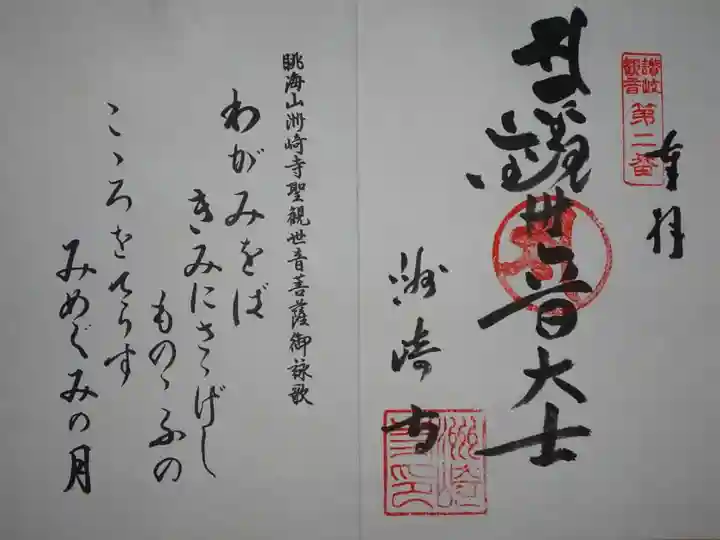 讃岐
観音
第二番
奉拝
聖観世音大士
洲崎寺
洲崎
寺印
眺海山洲崎寺聖観世音菩薩御詠歌
わがみをば
きみにさゝげし
ものゝふの
こゝろをてらす
みめぐみの月